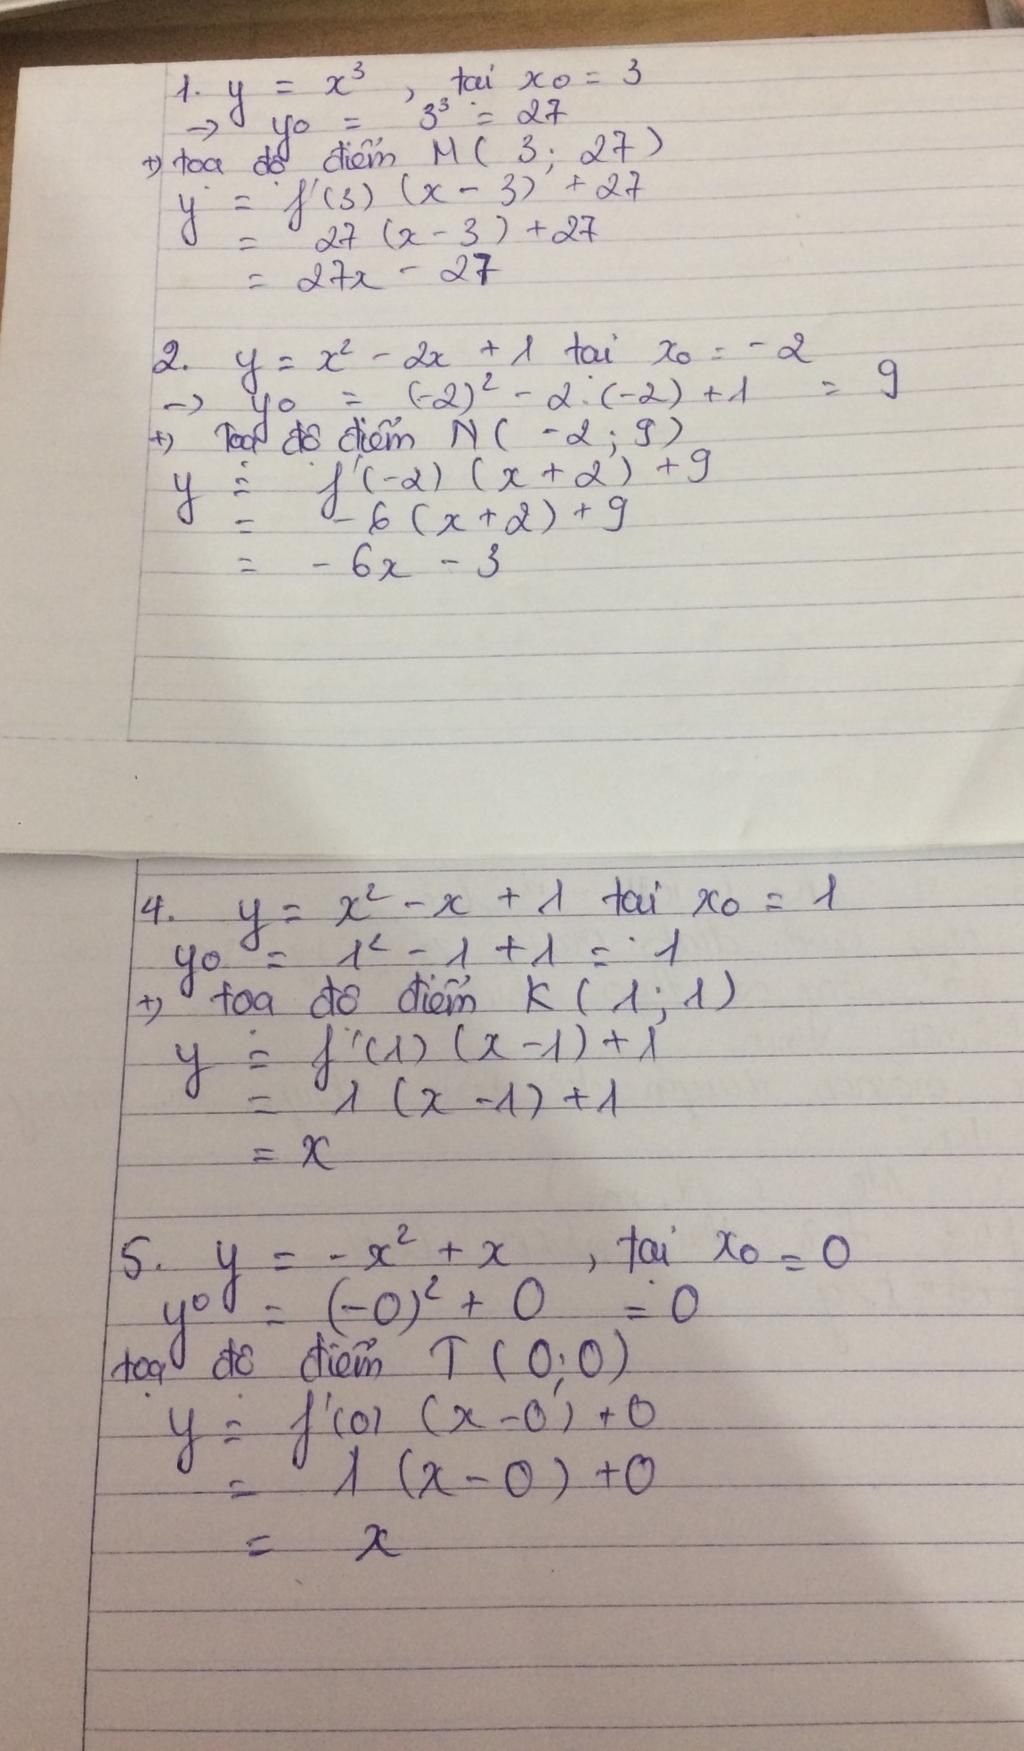 1. y = x³ , tai x0 = 3
→ y0 = 3³ = 27
+) toa độ điểm M( 3; 27)
y = f'(3) (x - 3) + 27
= 27 (x - 3) + 27
= 27x - 27
2. y = x² - 2x + 1 tai x0 = -2
→ y0 = (-2)² - 2.(-2) + 1 = 9
+) Toa độ điểm N( -2; 9)
y = f'(-2) (x + 2) + 9
= -6 (x + 2) + 9
= -6x - 3
4. y = x² - x + 1 tai x0 = 1
y0 = 1² - 1 + 1 = 1
+) toa độ điểm K( 1; 1)
y = f'(1) (x - 1) + 1
= 1 (x - 1) + 1
= x
5. y = -x² + x , tai x0 = 0
y0 = (-0)² + 0 = 0
toạ độ điểm T ( 0; 0)
y = f'(0) (x - 0) + 0
= 1 (x - 0) + 0
= x